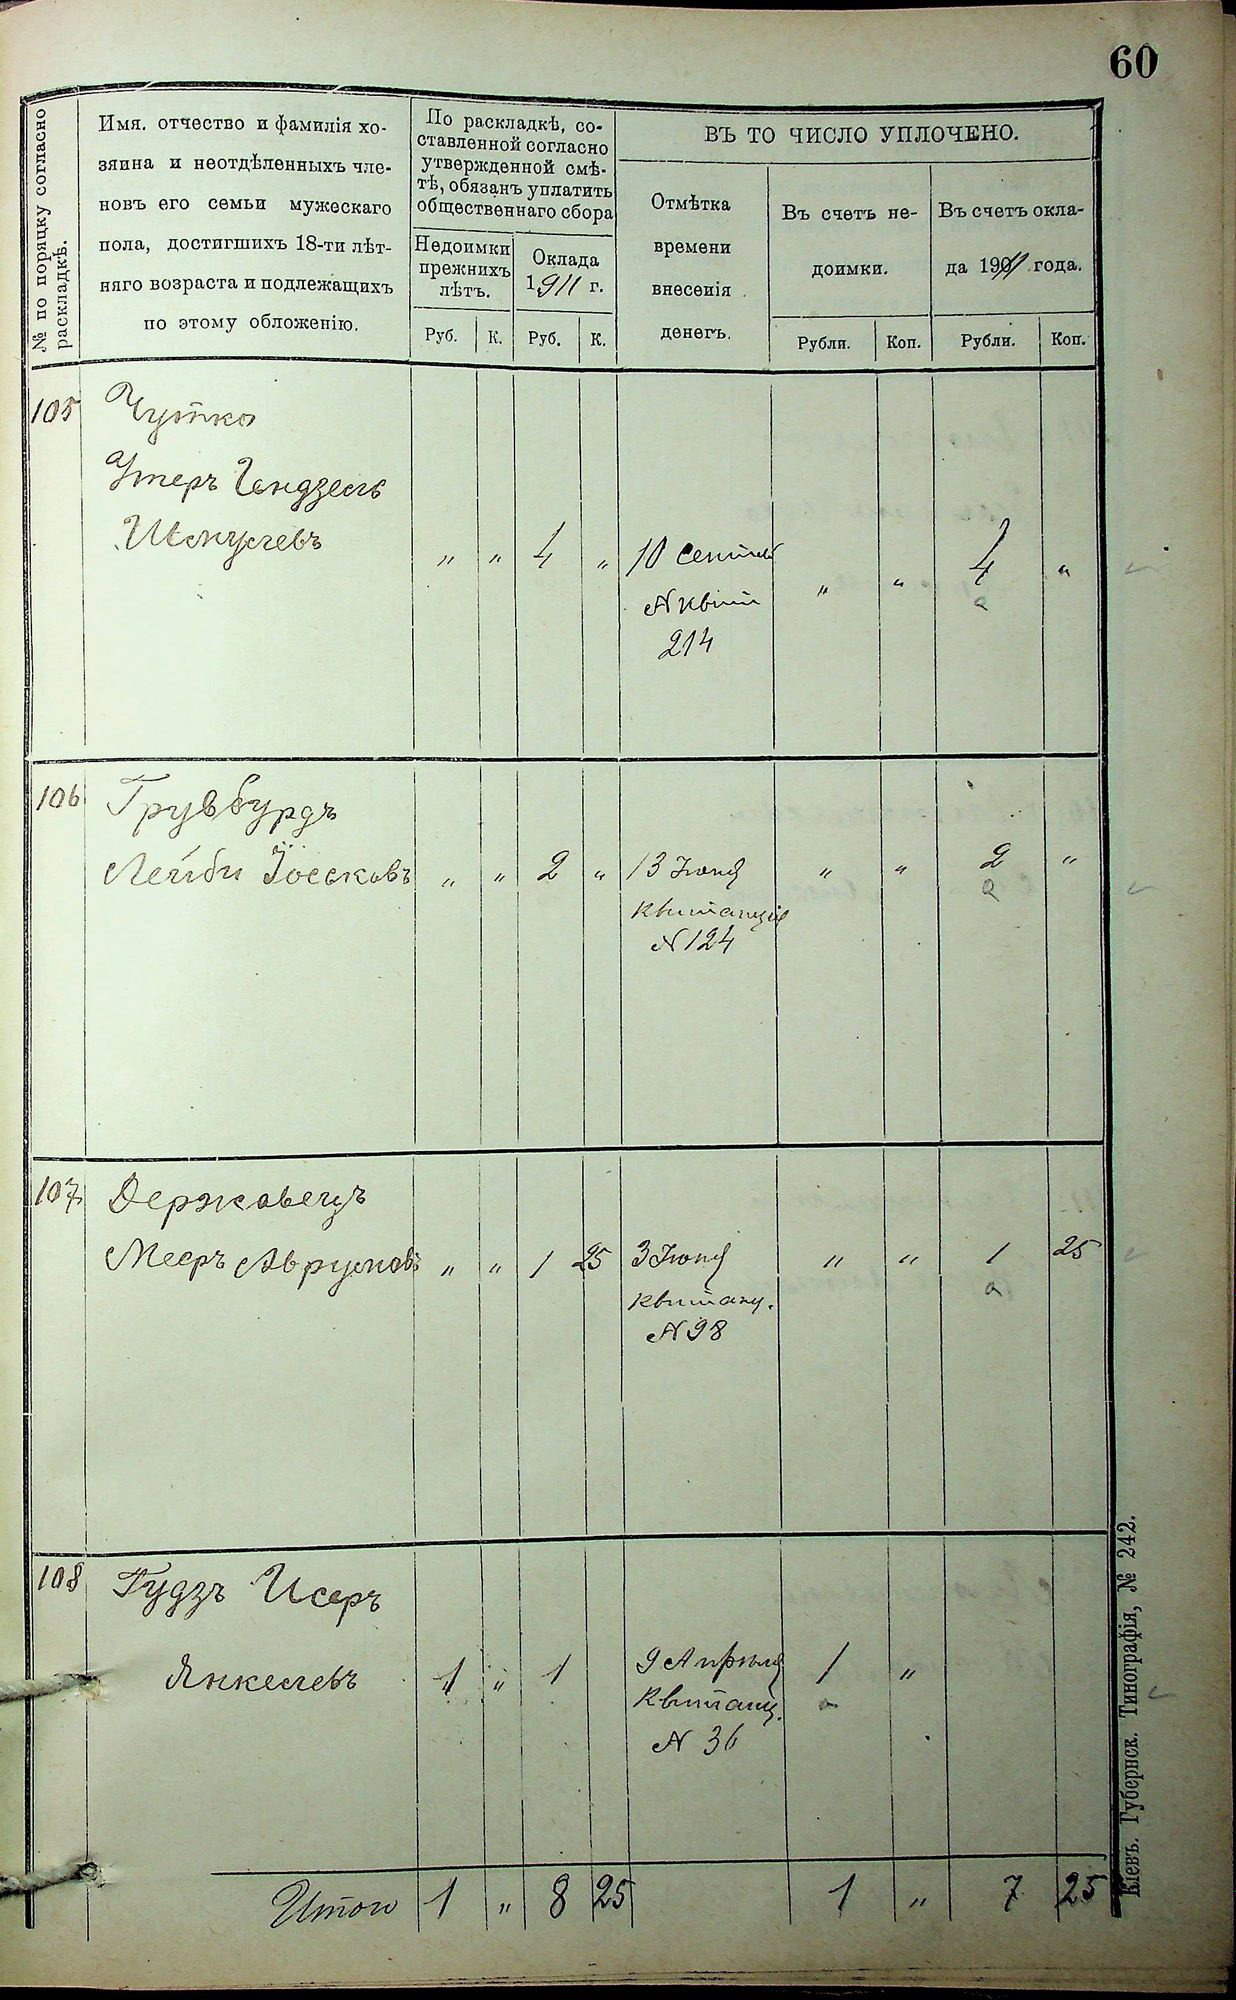 60
№ по порядку согласно
раскладкѣ.
Имя. отчество и фамилія хо-
зяина и неотдѣленныхъ чле-
новъ его семьи мужескаго
пола, достигшихъ 18-ти лѣт-
няго возраста и подлежащихъ
по этому обложенію.
По раскладкѣ, со-
ставленной согласно
утвержденной смѣ-
тѣ, обязанъ уплатить
общественнаго сбора
Недоимки
прежнихъ
лѣтъ.
Оклада
1911 г.
Руб. К. Руб. К.
ВЪ ТО ЧИСЛО УПЛОЧЕНО.
Отмѣтка
времени
внесенія
денегъ.
Въ счетъ не-
доимки.
Въ счетъ окла-
да 1911 года.
Рубли. Коп. Рубли. Коп.
105 Чутко
Умеръ
" " 4 " 10
" " 4 "
№ квит
214
106
Лейби Іоськовъ " " 2 " 13 Іюня " " 2 "
квитанція
№ 124
107 Державецъ
Мееръ Аврумовъ " " 1 25 3 Іюня " " 1 25
квитанц.
№ 98
108 Гудзъ Исеръ
Янкелевъ 1 " 1 9 Апрѣля 1 "
Квитанц.
№ 36
Итого 1 " 8 25 1 " 7 25
Кіевъ. Губернск. Типографія, № 242.